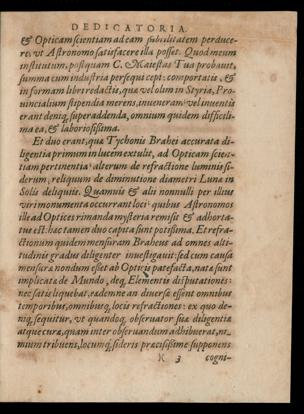 DEDICATORIA.
& Opticam scientiam ad eam subtilitatem perduce-
re, vt Astronomo satisfacere illa posset. Quod meum
institutum, postquam C. Maiestas Tua probauit,
summa cum industria persequi cepi: comportatis, &
in formam libri redactis, quæ vel olim in Styria, Pro-
uincialium stipendia merens, inueneram: vel inuentis
erant deniq, superaddenda, omnium quidem difficilli-
ma ea, & laboriosissima.
Et duo erant, quæ Tychonis Brahei accurata di-
ligentia primum in lucem extulit, ad Opticam scien-
tiam pertinentia: alterum de refractione luminis si-
derum, reliquum de diminutione diametri Lunæ in
Solis deliquiis. Quamuis & alii nonnulli per illius
viri monumenta occurrant loci, quibus Astronomos
ille ad Optices rimanda mysteria remisit & adhorta-
tus est: hæc tamen duo capita sunt potissima. Et refra-
ctionum quidem mensuram Braheus ad omnes alti-
tudinis gradus diligenter inuestigauit: sed cum causa
mensuræ nondum esset ab Opticis patefacta, natæ sunt
implicatæ de Mundo, deq, Elementis disputationes:
nec satis liquebat, eædemne an diuersæ essent omnibus
temporibus, omnibusq, locis refractiones: ex quo de-
niq, sequitur, vt quandoq, obseruator suæ diligentiæ
atque curæ, quam inter obseruandum adhibuerat, ni-
mium tribuens, locumq, sideris præcisissime supponens
K 3 cogni-